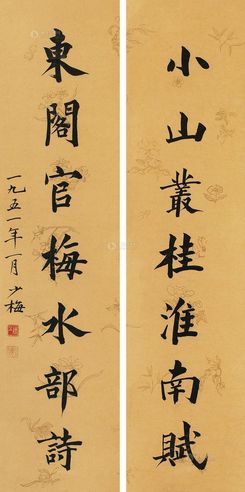 小山叢桂淮南賦
東閣官梅水部詩
一九五一年一月少梅